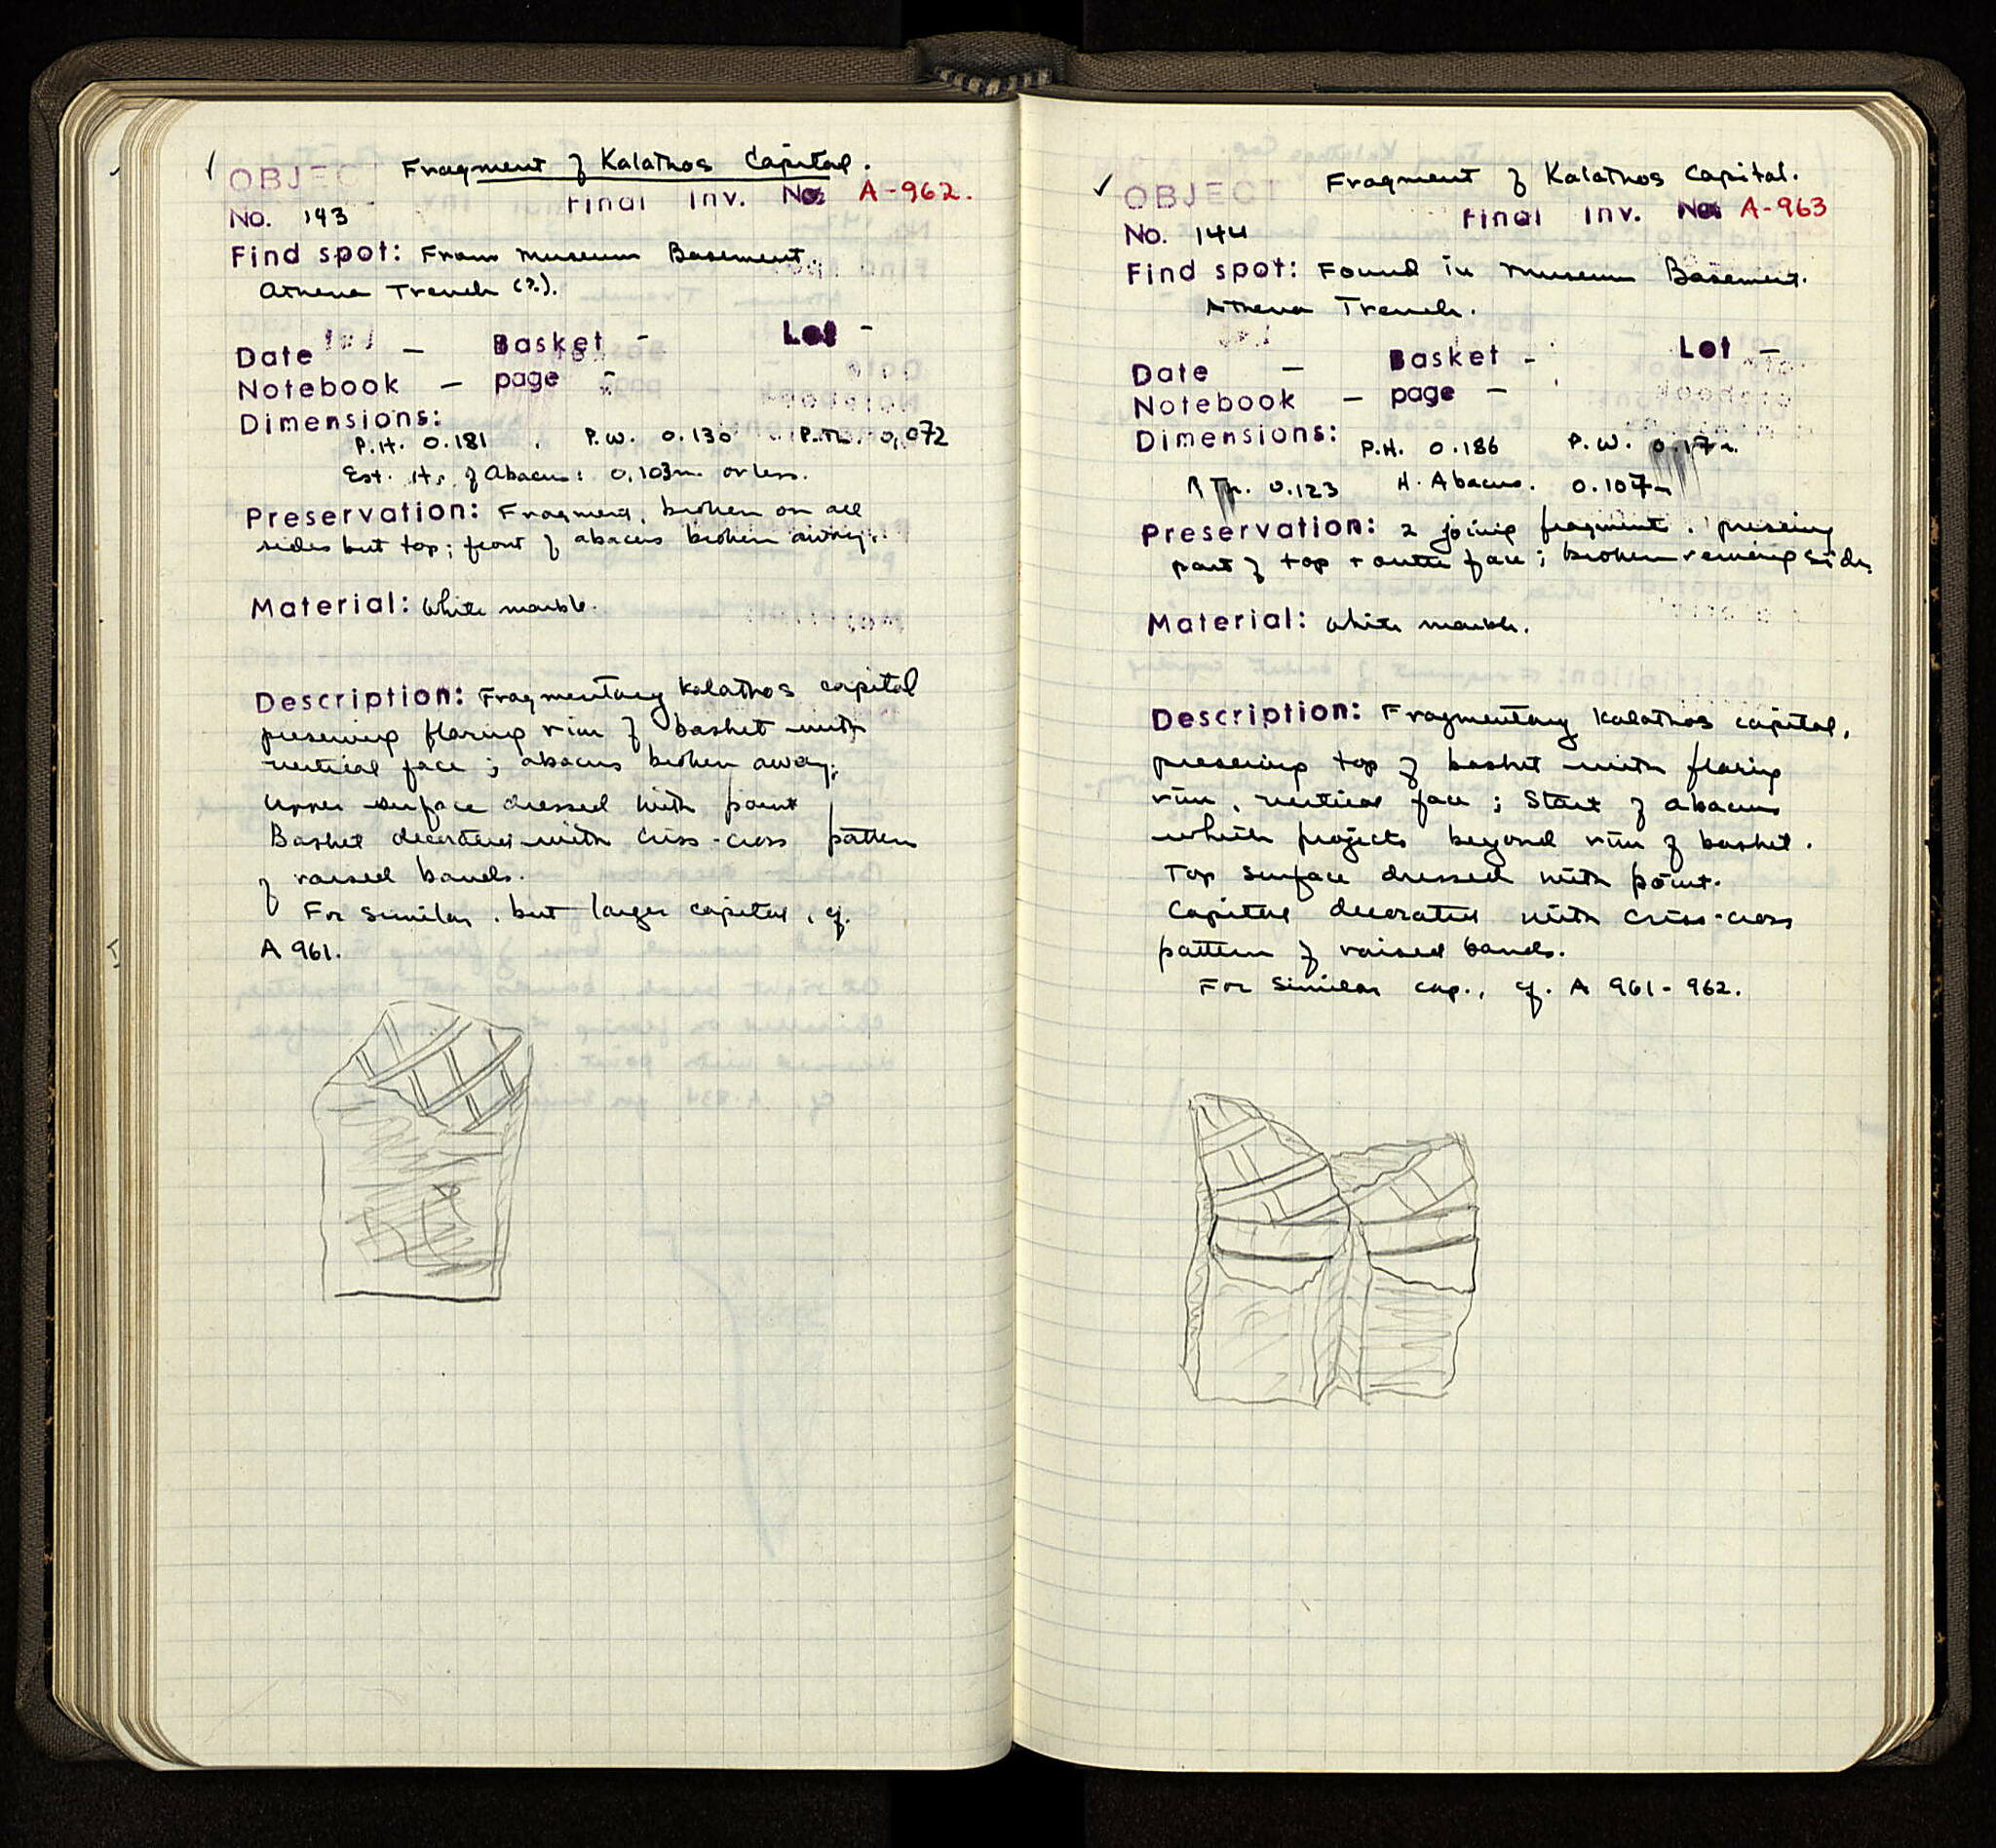 OBJECT Fragment of Kalathos Capital.
No. 143 Final Inv. No. A-962.
Find spot: From Museum Basement.
Athena Trench (?).
Date - Basket - Lot -
Notebook - page -
Dimensions:
P.H. 0.181 P.W. 0.130 P.Th. 0,072
Est. H. of Abacus: 0,103m. or less.
Preservation: Fragment, broken on all
sides but top; front of abacus broken away.
Material: White marble.
Description: Fragmentary Kalathos capital
preserving flaring rim of basket with
vertical face; abacus broken away;
upper surface dressed with point
Basket decorated with criss-cross pattern
of raised bands.
For similar, but larger capital, cf.
A 961.
OBJECT Fragment of Kalathos Capital.
No. 144 Final Inv. No. A-963
Find spot: Found in Museum Basement.
Athena Trench.
Date - Basket - Lot -
Notebook - page -
Dimensions: P.H. 0.186 P.W. 0.17
P.Th. 0.123 H. Abacus. 0.107
Preservation: 2 joining fragments. preserving
part of top + outer face; broken remaining sides
Material: White marble.
Description: Fragmentary kalathos capital,
preserving top of basket with flaring
rim, vertical face; Start of abacus
which projects beyond rim of basket.
Top surface dressed with point.
Capital decorated with criss-cross
pattern of raised bands.
For similar cap., cf. A 961-962.